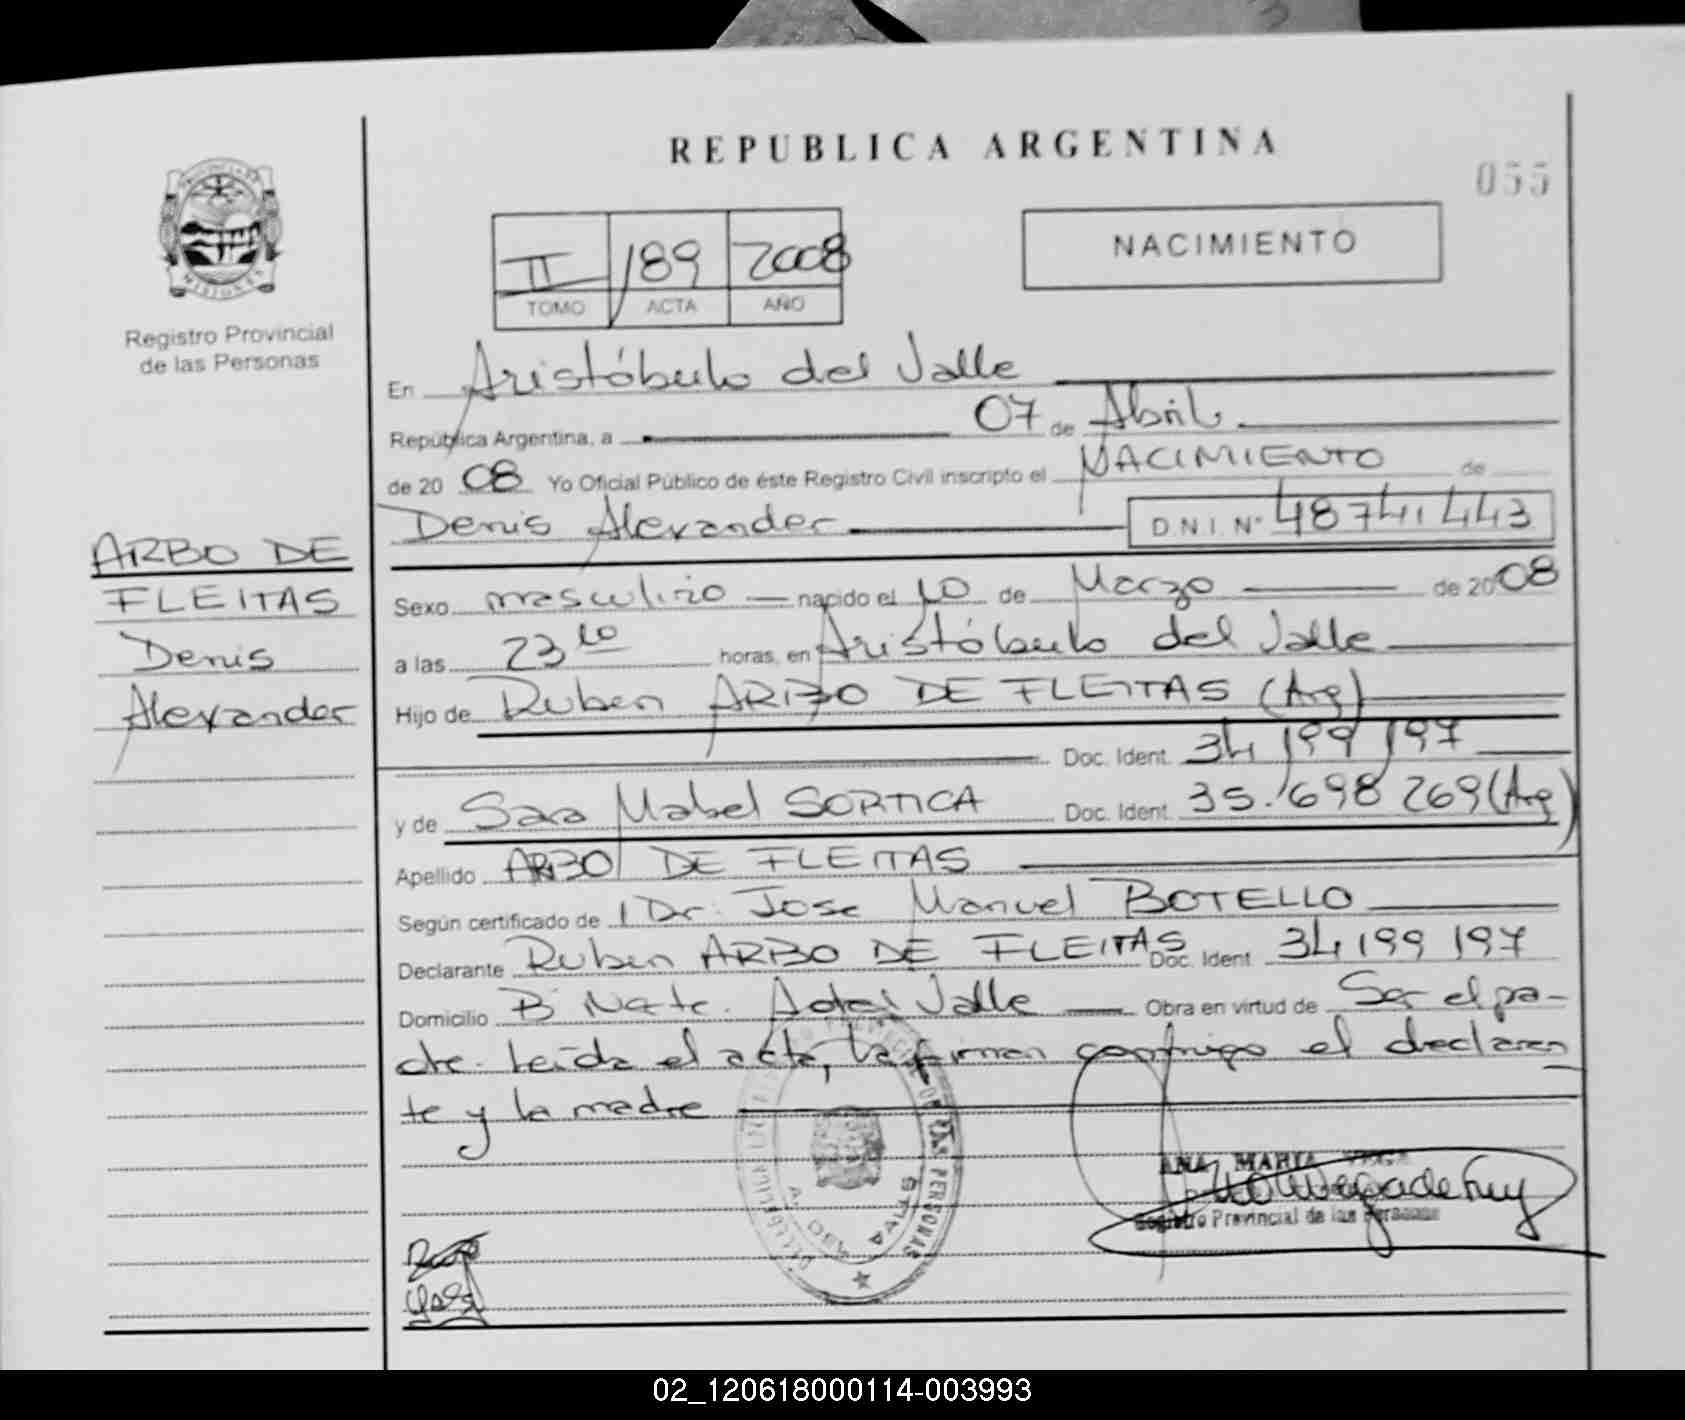 REPUBLICA ARGENTINA
055
II 189 2008
TOMO ACTA AÑO
NACIMIENTO
MISIONES
Registro Provincial
de las Personas
En Aristóbulo del Valle
República Argentina, a 07 de Abril
de 20 08 Yo Oficial Público de éste Registro Civil inscripto el NACIMIENTO de
Denis Alexander D.N.I. Nº 48741443
ARBO DE
FLEITAS
Denis
Alexander
Sexo masculino nacido el 10 de Marzo de 2008
a las 23 10 horas, en Aristóbulo del Valle
Hijo de Ruben ARBO DE FLEITAS (Arg)
Doc. Ident. 34 199 197
y de Sara Mabel SORTICA Doc. Ident. 35.698 269 (Arg)
Apellido ARBO DE FLEITAS
Según certificado de Dr. Jose Manuel BOTELLO
Declarante Ruben ARBO DE FLEITAS Doc. Ident 34 199 197
Domicilio Bº Nte. A del Valle Obra en virtud de Ser el pa-
dre. Leída el acta, la firman conmigo el declaran
te y la madre
DE LAS PERSONAS
A. DEL VALLE
ANA MARIA VEGA
Registro Provincial de las Personas
02_120618000114-003993